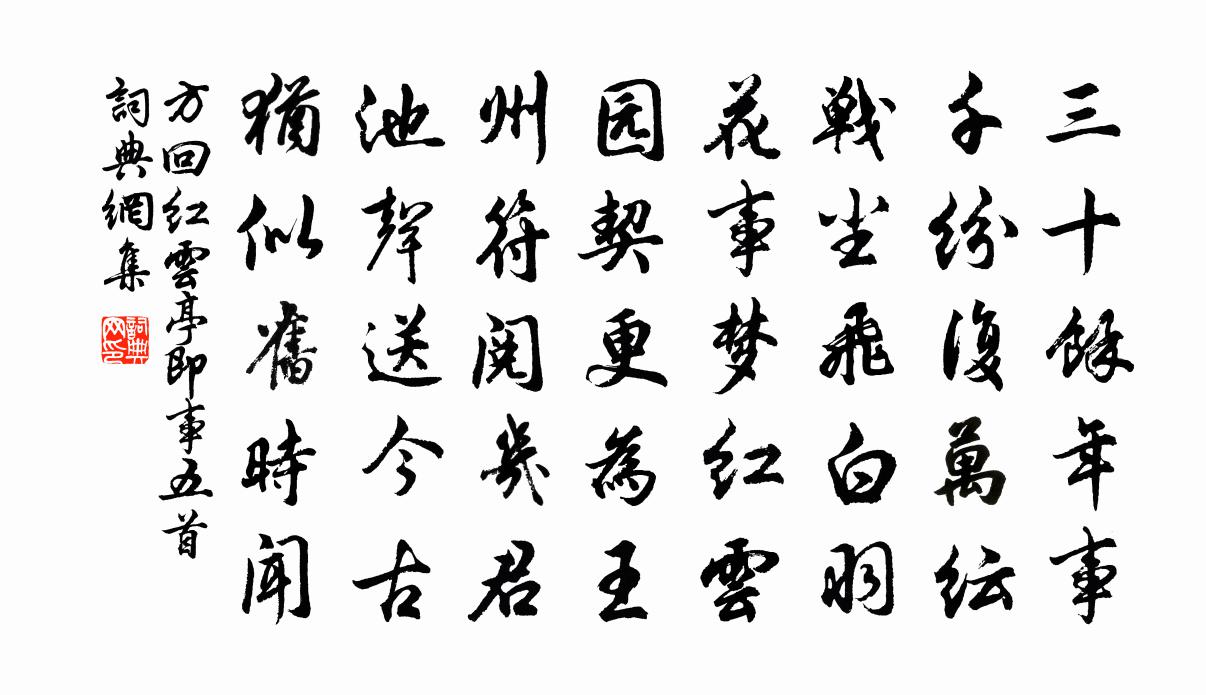 三十餘年事
千紛復萬紜
戰尘飛白羽
花事梦紅雲
园契更為王
州符閱幾君
池聲送今古
猶似舊時聞
方回紅雲亭即事五首
詞典網集
詞典网印